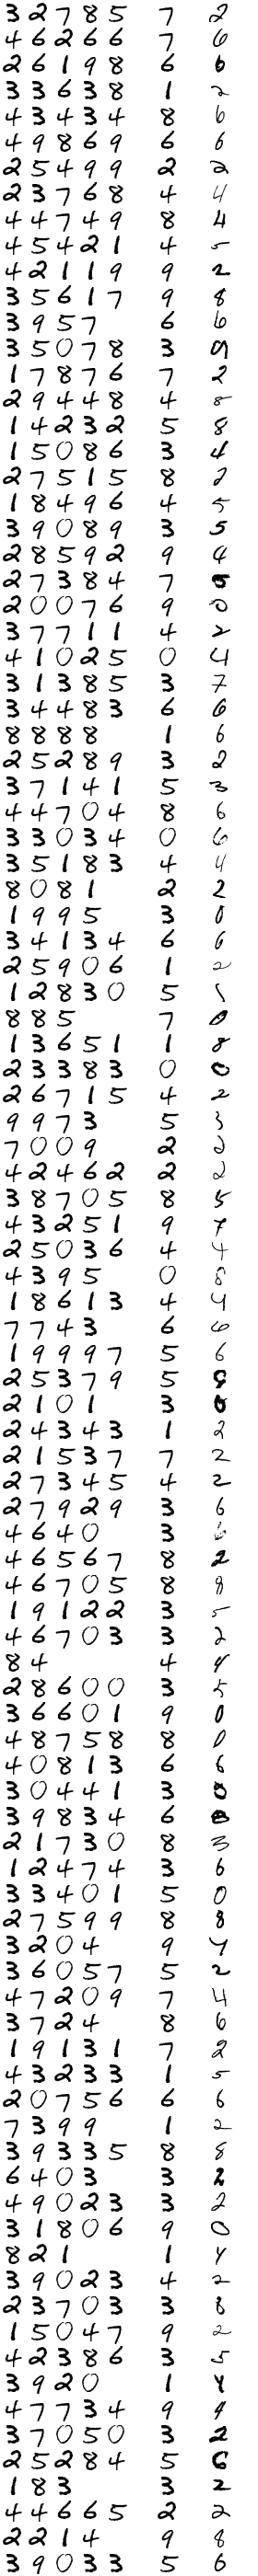 32785 7 2
46266 7 6
26198 6 6
33638 1 2
43434 8 6
49869 6 6
25499 2 2
23768 4 4
44749 8 4
45421 4 5
42119 9 2
35617 9 8
3957 6 6
35078 3 9
17876 7 2
29448 4 8
14232 5 8
15086 3 4
27515 8 2
18496 4 5
39089 3 5
28592 9 4
27384 7
20076 9 0
37711 4 2
41025 0 4
31385 3 7
34483 6 6
8888 1 6
25289 3 2
37141 5 3
44704 8 6
33034 0 6
35183 4 4
8081 2 2
1995 3 0
34134 6 6
25906 1 2
12830 5 1
885 7 0
13651 1 8
23383 0 0
26715 4 2
9973 5 3
7009 2 2
42462 2 2
38705 8 5
43251 9 7
25036 4 4
4395 0 8
18613 4 4
7743 6 6
19997 5 6
25379 5 9
2101 3 0
24343 1 2
21537 7 2
27345 4 2
27929 3 6
4640 3 6
46567 8 2
46705 8 8
19122 3 5
46703 3 2
84 4 4
28600 3 5
36601 9 0
48758 8 0
40813 6 6
30441 3 0
39834 6 8
21730 8 3
12474 3 6
33401 5 0
27599 8 8
3204 9 4
36057 5 2
47209 7 4
3724 8 6
19131 7 2
43233 1 5
20756 6 6
7399 1 2
39335 8 8
6403 3 2
49023 3 2
31806 9 0
821 1 4
39023 4 2
23703 3 8
15047 9 2
42386 3 5
3920 1 4
47734 9 4
37050 3 2
25284 5 6
183 3 2
44665 2 2
2214 9 8
39033 5 6